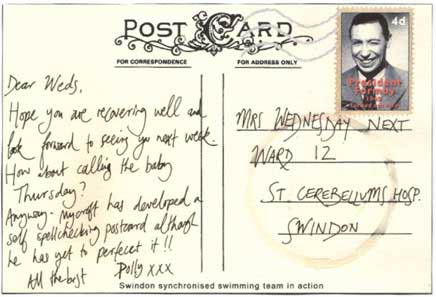 POST CARD
FOR CORRESPONDENCE
FOR ADDRESS ONLY
4d
President
Formby
Dear Weds,
Hope you are recovering well and
look forward to seeing you next week.
How about calling the baby
Thursday?
Anyway - Mycroft has developed a
self spellchecking postcard although
he has yet to perfecet it!!
All the best
Polly xxx
MRS WEDNESDAY NEXT
WARD 12
ST. CEREBELLUMS HOSP.
SWINDON
Swindon synchronised swimming team in action